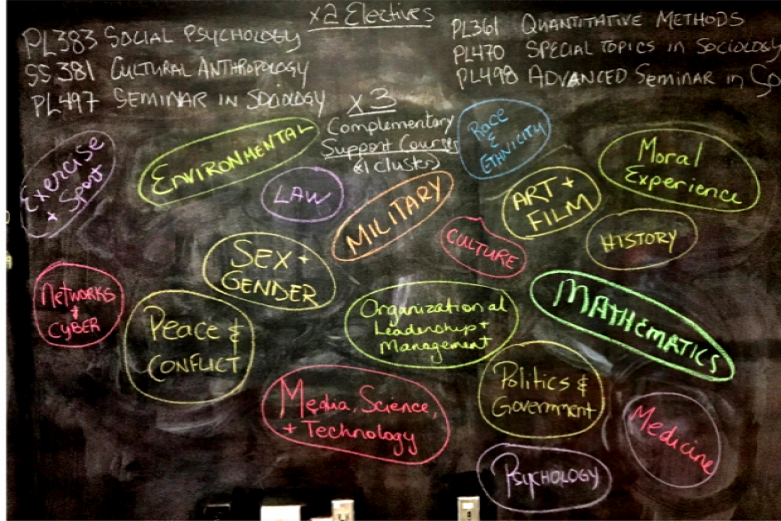 x2 Electives
PL383 SOCIAL PSYCHOLOGY
SS381 CULTURAL ANTHROPOLOGY
PL497 SEMINAR IN SOCIOLOGY
PL361 QUANTITATIVE METHODS
PL470 SPECIAL TOPICS IN SOCIOLOGY
PL498 ADVANCED SEMINAR IN
x3
Complementary
Support Courses
(1 cluster)
Exercise
+ Sport
ENVIRONMENTAL
LAW
MILITARY
RACE
&
ETHNICITY
ART +
FILM
Moral
Experience
HISTORY
CULTURE
SEX +
GENDER
NETWORKS
+
CYBER
Peace &
CONFLICT
Organizational
Leadership +
Management
MATHEMATICS
Media, Science,
+ Technology
Politics &
Government
Medicine
PSYCHOLOGY